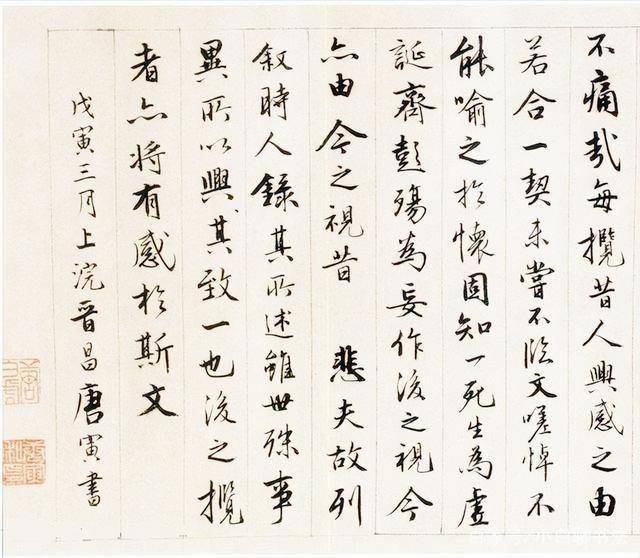 不痛哉每攬昔人興感之由
若合一契未嘗不臨文嗟悼不
能喻之於懷固知一死生為虛
誕齊彭殤為妄作後之視今
亦由今之視昔 悲夫故列
敘時人錄其所述雖世殊事
異所以興其致一也後之攬
者亦將有感於斯文
戊寅三月上浣晉昌唐寅書